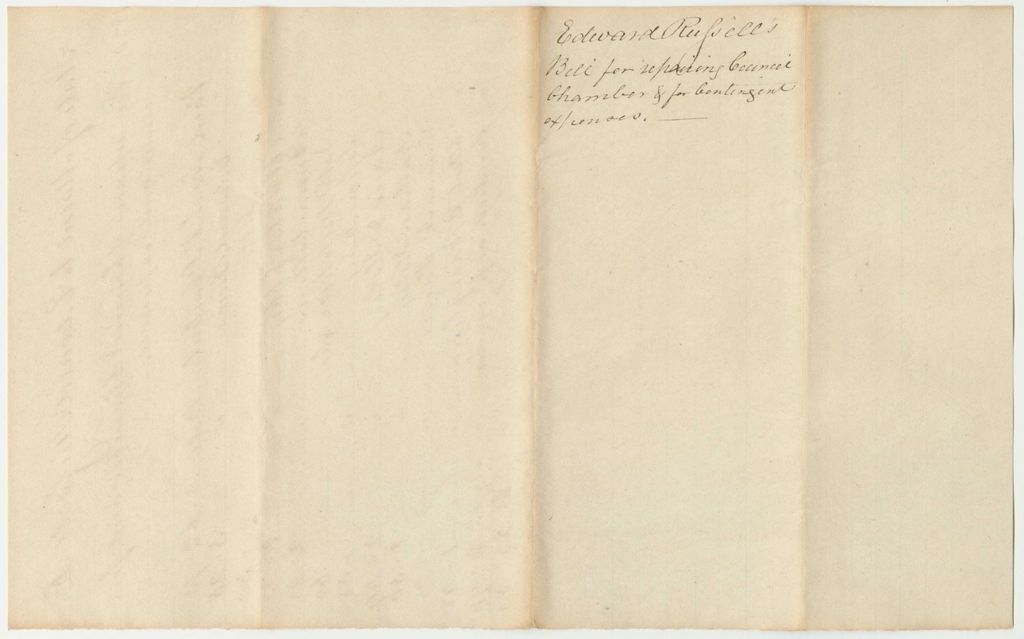 Edward Russell's
Bill for repairing Council
Chamber & for Contingent
expenses.